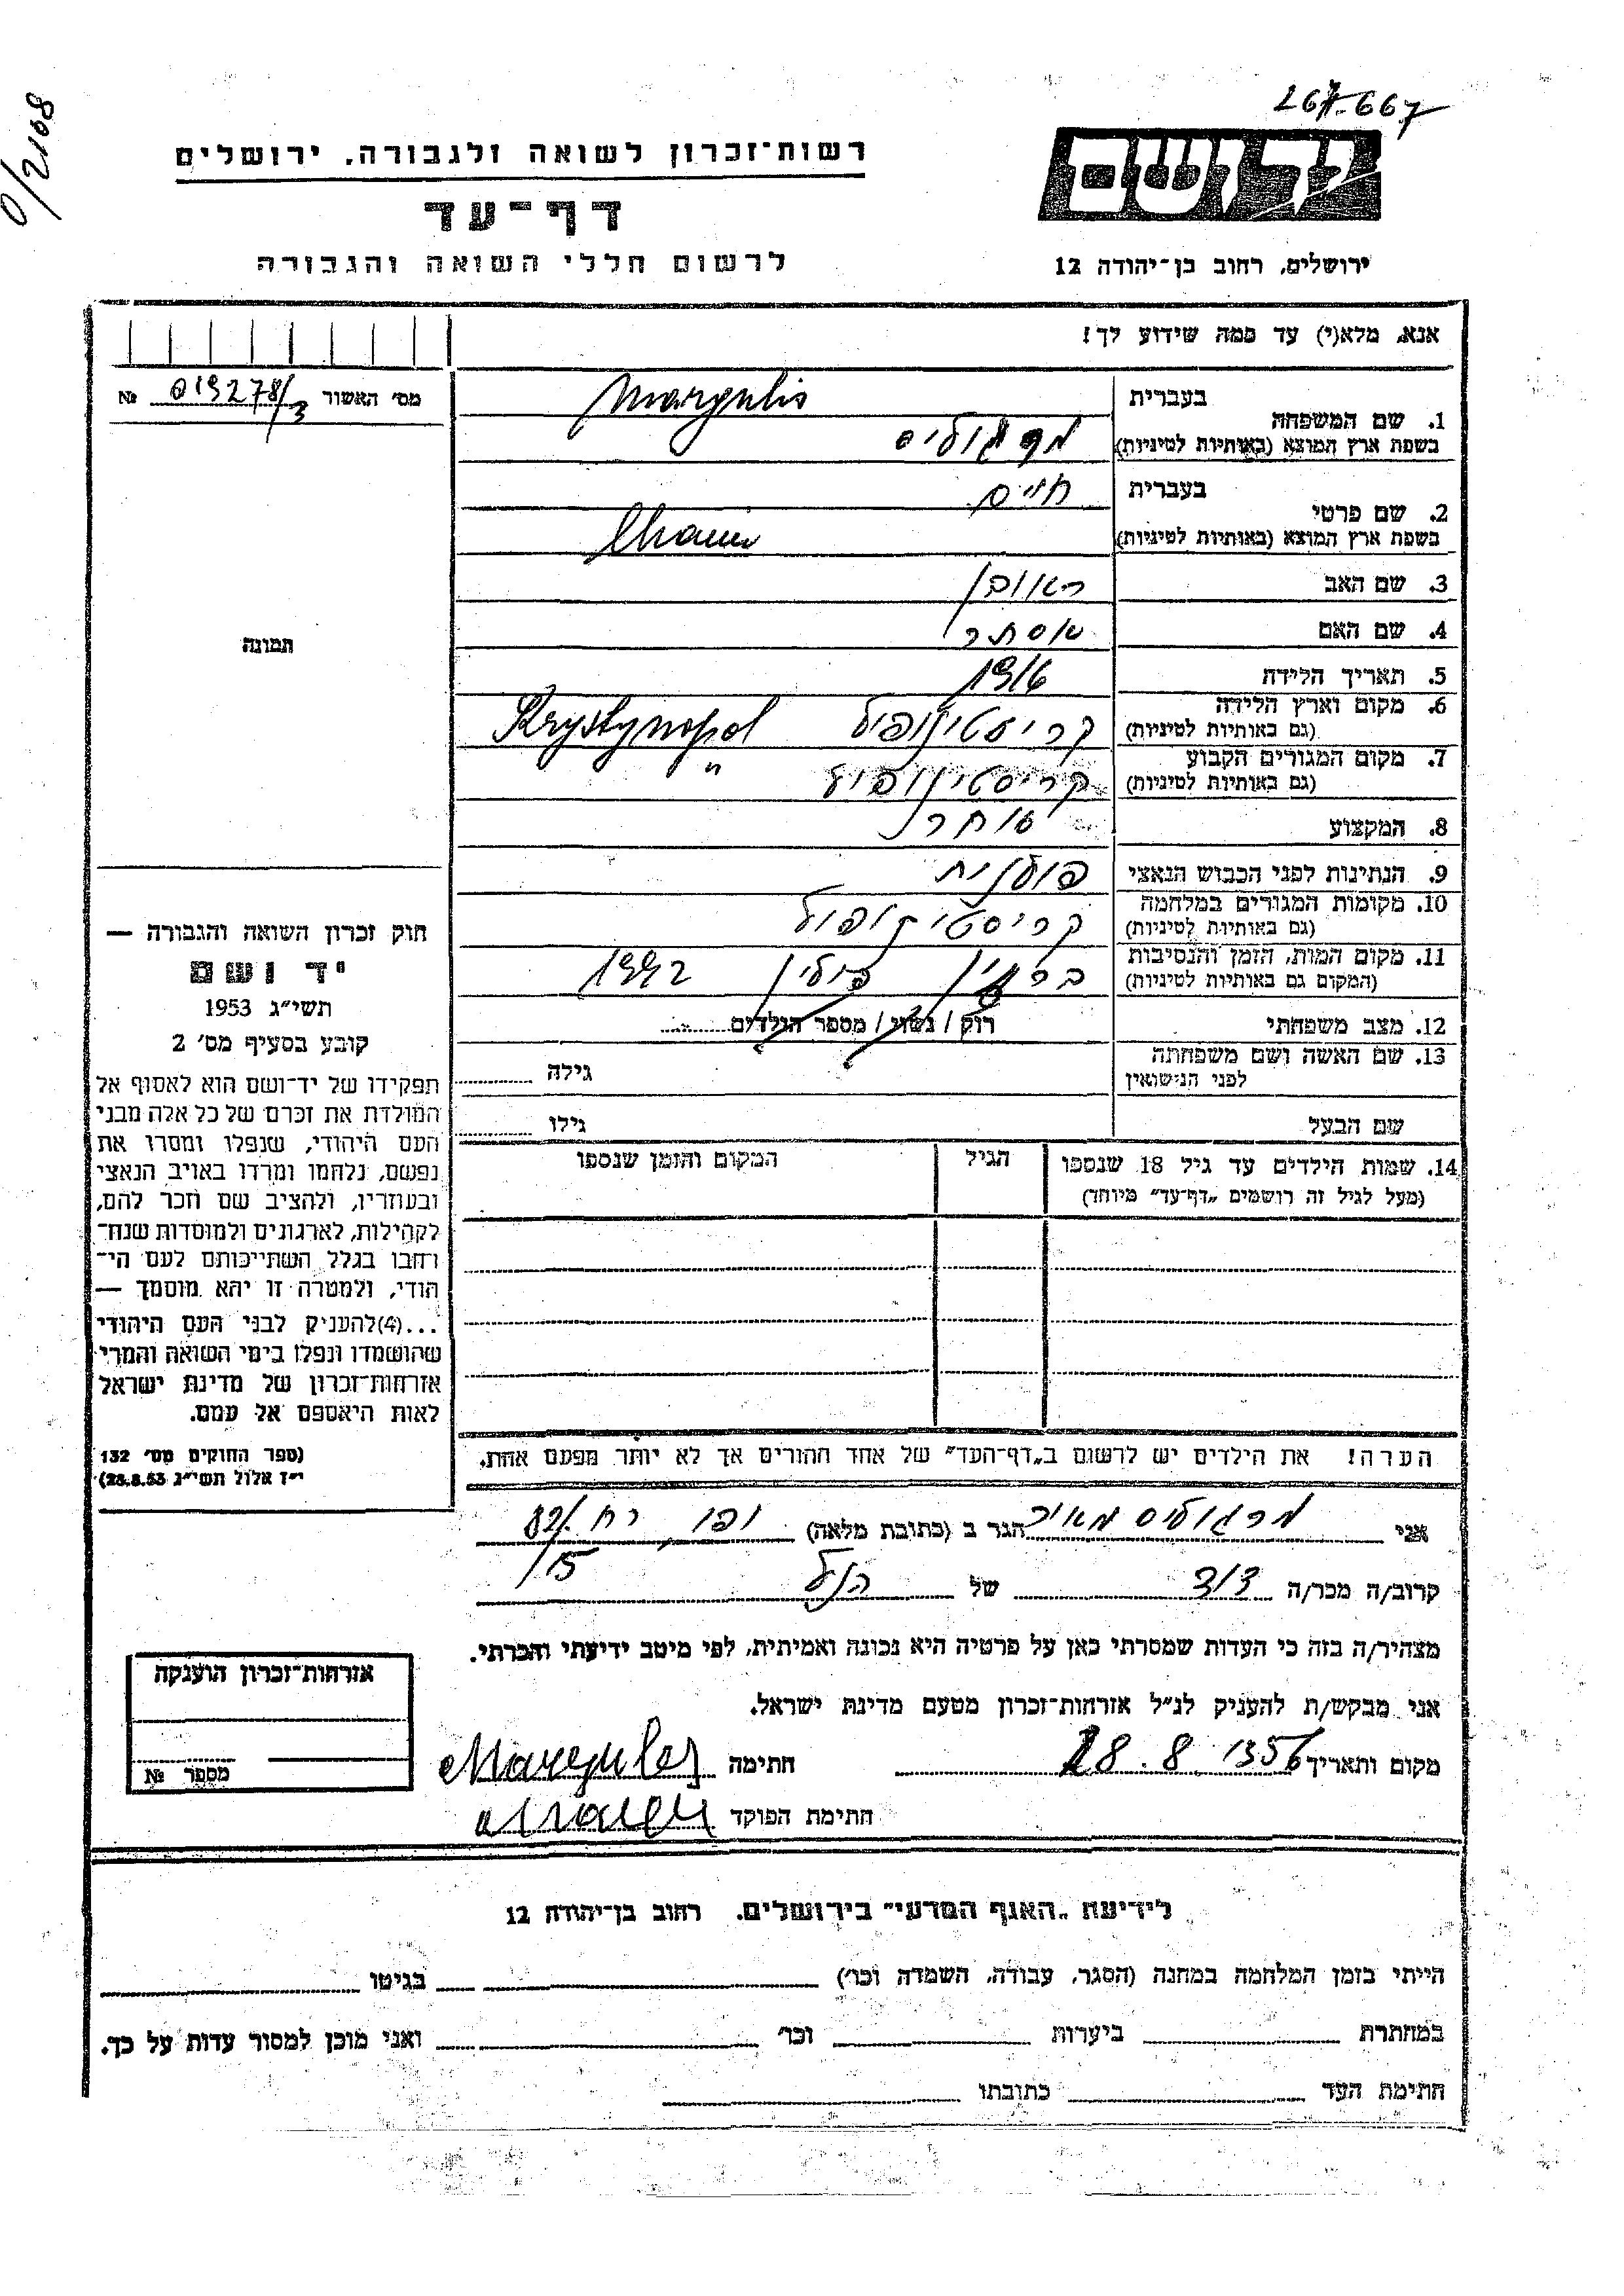 267.667
0/2108
רשות־זכרון לשואה ולגבורה, ירושלים
דף־עד
לרשום חללי השואה והגבורה
יד ושם
ירושלים, רחוב בן־יהודה 12
אנא, מלא(י) עד כמה שידוע לך!
מס׳ האשור 019278/3 №
תמונה
1. שם המשפחה
בעברית
Margulis
בשפת ארץ המוצא (באותיות לטיניות)
מרגוליס
2. שם פרטי
בעברית חיים
בשפת ארץ המוצא (באותיות לטיניות) Chaim
3. שם האב ראובן
4. שם האם אסתר
5. תאריך הלידה 1916
6. מקום וארץ הלידה
(גם באותיות לטיניות) קריסטינופול Krystynopol
7. מקום המגורים הקבוע
(גם באותיות לטיניות) קריסטינופול "
8. המקצוע סוחר
9. הנתינות לפני הכבוש הנאצי פולנית
10. מקומות המגורים במלחמה
(גם באותיות לטיניות) קריסטינופול
11. מקום המות, הזמן והנסיבות
(המקום גם באותיות לטיניות) פולין 1942
12. מצב משפחתי רוק / נשוי / מספר הילדים
13. שם האשה ושם משפחתה
לפני הנישואין גילה
שם הבעל גילו
14. שמות הילדים עד גיל 18 שנספו
(מעל לגיל זה רושמים „דף־עד״ מיוחד)
הגיל
המקום והזמן שנספו
הערה! את הילדים יש לרשום ב„דף־העד״ של אחד ההורים אך לא יותר מפעם אחת.
חוק זכרון השואה והגבורה —
יד ושם
תשי״ג 1953
קובע בסעיף מס׳ 2
תפקידו של יד־ושם הוא לאסוף אל
המולדת את זכרם של כל אלה מבני
העם היהודי, שנפלו ומסרו את
נפשם, נלחמו ומרדו באויב הנאצי
ובעוזריו, ולהציב שם וזכר להם,
לקהילות, לארגונים ולמוסדות שנח־
רבו בגלל השתייכותם לעם הי־
הודי, ולמטרה זו יהא מוסמך —
...(4)להעניק לבני העם היהודי
שהושמדו ונפלו בימי השואה והמרי
אזרחות־זכרון של מדינת ישראל
לאות היאספם אל עמם.
(ספר החוקים מס׳ 132
י״ז אלול תשי״ג 28.8.53)
אני מרגוליס מאיר הגר ב (כתובת מלאה) יפו, רח 82/
15/
קרוב/ה מכר/ה דוד של הנ״ל
מצהיר/ה בזה כי העדות שמסרתי כאן על פרטיה היא נכונה ואמיתית, לפי מיטב ידיעתי והכרתי.
אני מבקש/ת להעניק לנ״ל אזרחות־זכרון מטעם מדינת ישראל.
מקום ותאריך 28.8.1956 חתימה Margules
חתימת הפוקד
אזרחות־זכרון הוענקה
מספר №
לידיעת „האגף המדעי״ בירושלים. רחוב בן־יהודה 12
הייתי בזמן המלחמה במחנה (הסגר, עבודה, השמדה וכו׳) בגיטו
במחתרת ביערות וכו׳ ואני מוכן למסור עדות על כך.
חתימת העד כתובתו